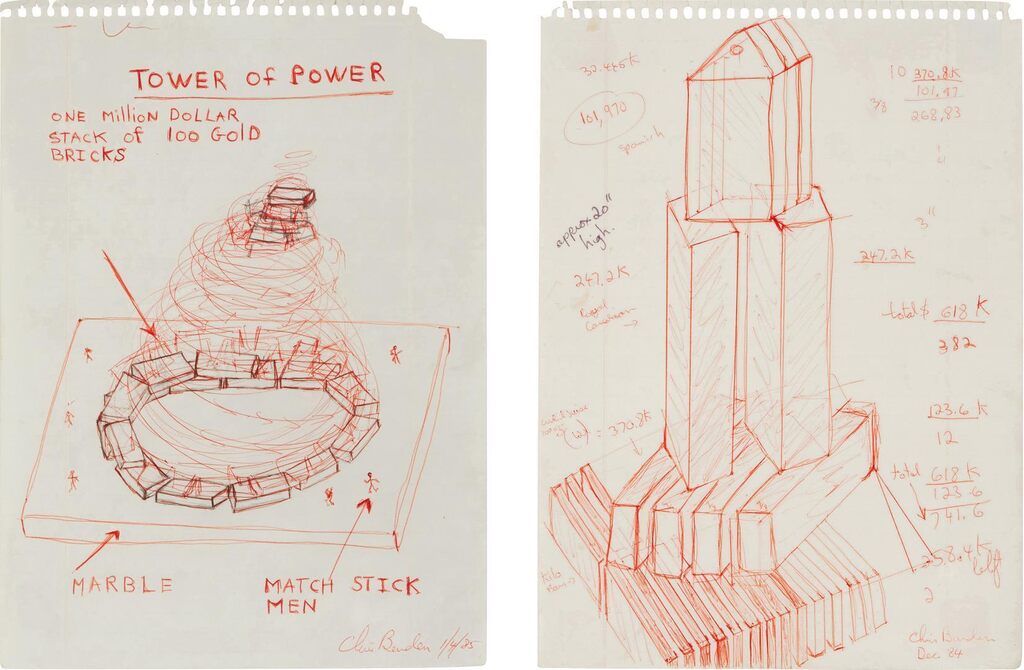 TOWER of POWER
ONE MilliON DOLLAR
STACK of 100 GOLD
BRICKS
MARBLE
MATCH STICK
MEN
Chris Burden 1/4/85
101,970
Spanish
approx 20"
high.
247.2K
= 370.8K
Kilo
Bars →
10 370.8K
3"
247.2K
total $ 618 K
382
123.6 K
12
total 618 K
123.6
741.6
258.4K
left
2
Chris Burden
Dec 84